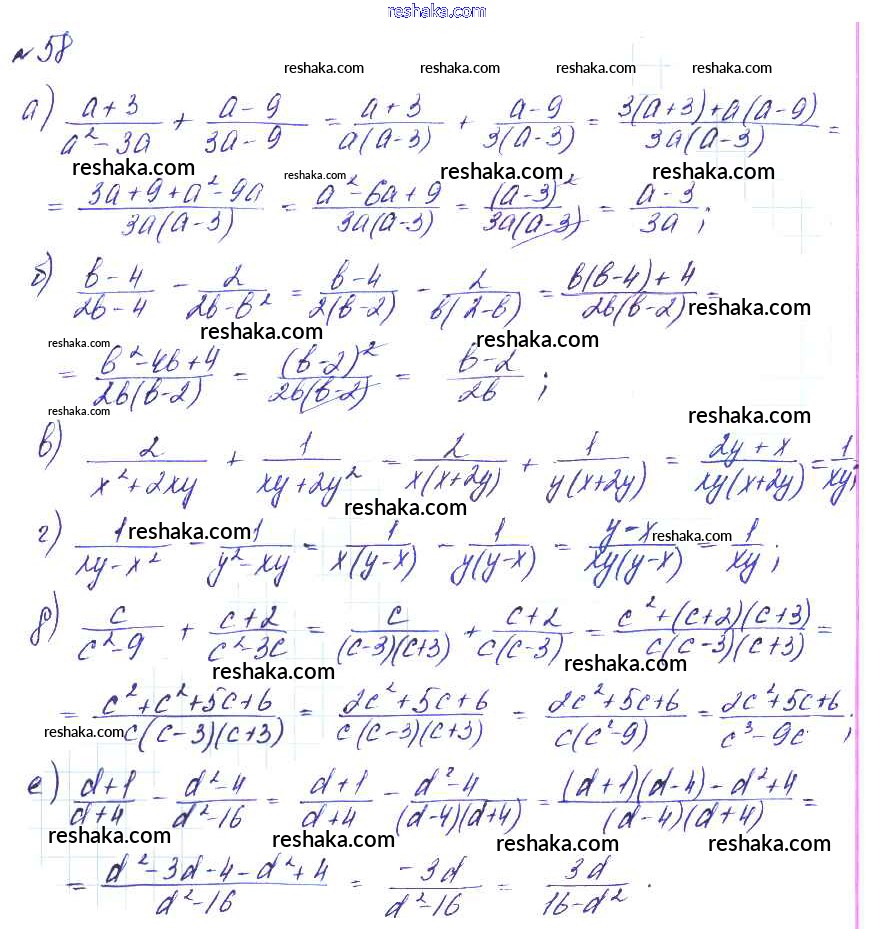 reshaka.com
№ 58
reshaka.com reshaka.com reshaka.com reshaka.com
а) (a+3)/(a²-3a) + (a-9)/(3a-9) = (a+3)/(a(a-3)) + (a-9)/(3(a-3)) = (3(a+3)+a(a-9))/(3a(a-3)) =
reshaka.com reshaka.com reshaka.com reshaka.com
= (3a+9+a²-9a)/(3a(a-3)) = (a²-6a+9)/(3a(a-3)) = (a-3)²/(3a(a-3)) = (a-3)/(3a);
б) (b-4)/(2b-4) - 2/(2b-b²) = (b-4)/(2(b-2)) - 2/(b(2-b)) = (b(b-4)+4)/(2b(b-2)) =
reshaka.com
reshaka.com reshaka.com reshaka.com
= (b²-4b+4)/(2b(b-2)) = (b-2)²/(2b(b-2)) = (b-2)/(2b);
reshaka.com reshaka.com
в) 2/(x²+2xy) + 1/(xy+2y²) = 2/(x(x+2y)) + 1/(y(x+2y)) = (2y+x)/(xy(x+2y)) = 1/(xy);
reshaka.com
г) 1/(xy-x²) - 1/(y²-xy) = 1/(x(y-x)) - 1/(y(y-x)) = (y-x)/(xy(y-x)) = 1/(xy);
reshaka.com reshaka.com
д) c/(c²-9) + (c+2)/(c²-3c) = c/((c-3)(c+3)) + (c+2)/(c(c-3)) = (c²+(c+2)(c+3))/(c(c-3)(c+3)) =
reshaka.com reshaka.com
= (c²+c²+5c+6)/(c(c-3)(c+3)) = (2c²+5c+6)/(c(c-3)(c+3)) = (2c²+5c+6)/(c(c²-9)) = (2c²+5c+6)/(c³-9c);
reshaka.com
е) (d+1)/(d+4) - (d²-4)/(d²-16) = (d+1)/(d+4) - (d²-4)/((d-4)(d+4)) = ((d+1)(d-4)-d²+4)/((d-4)(d+4)) =
reshaka.com reshaka.com reshaka.com
= (d²-3d-4-d²+4)/(d²-16) = (-3d)/(d²-16) = 3d/(16-d²).